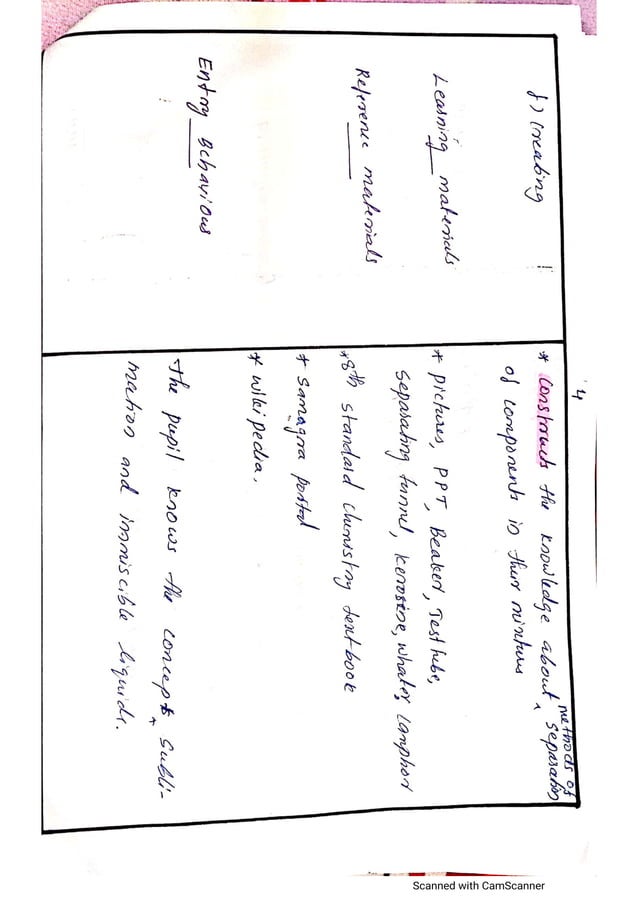 4
f) Creating
* Constructs the knowledge about methods of separation
of components in their mixtures
Learning materials
* pictures, PPT, Beaker, Test tube,
separating funnel, kerosine, whater, camphor
Reference materials
* 8th standard chemistry textbook
* Samagra portal
* wikipedia.
Entry Behaviour
The pupil knows the concept Subli-
mation and immiscible liquids.
Scanned with CamScanner